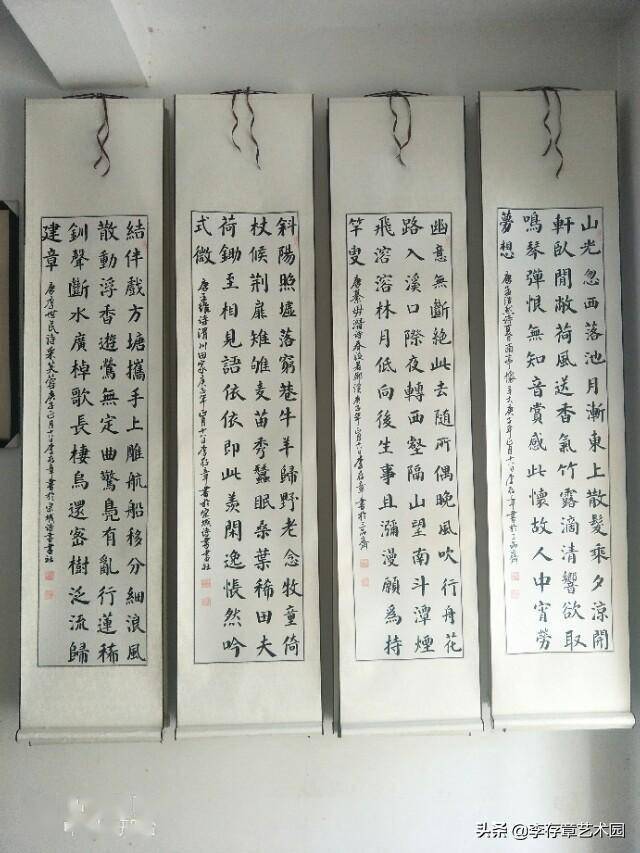 山光忽西落池月漸東上散髮乘夕涼開
軒臥閒敞荷風送香氣竹露滴清響欲取
鳴琴彈恨無知音賞感此懷故人中宵勞
夢想
唐孟浩然詩夏日南亭懷辛大庚子年正月十六日李存章書於三品齋
幽意無斷絕此去隨所偶晚風吹行舟花
路入溪口際夜轉西壑隔山望南斗潭煙
飛溶溶林月低向後生事且瀰漫願為持
竿叟
唐綦毋潛詩春泛若耶溪庚子年正月十六日李存章書於三品齋
斜陽照墟落窮巷牛羊歸野老念牧童倚
杖候荊扉雉雊麥苗秀蠶眠桑葉稀田夫
荷鋤至相見語依依即此羨閑逸悵然吟
式微
唐王維詩渭川田家庚子年正月十六日李存章書於宋城詩書畫社
結伴戲方塘攜手上雕航船移分細浪風
散動浮香遊鶯無定曲驚鳧有亂行蓮稀
釧聲斷水廣棹歌長棲烏還密樹泛流歸
建章
唐李世民詩采芙蓉庚子正月十六日李存章書於宋城詩書畫社
头条 @李存章艺术园